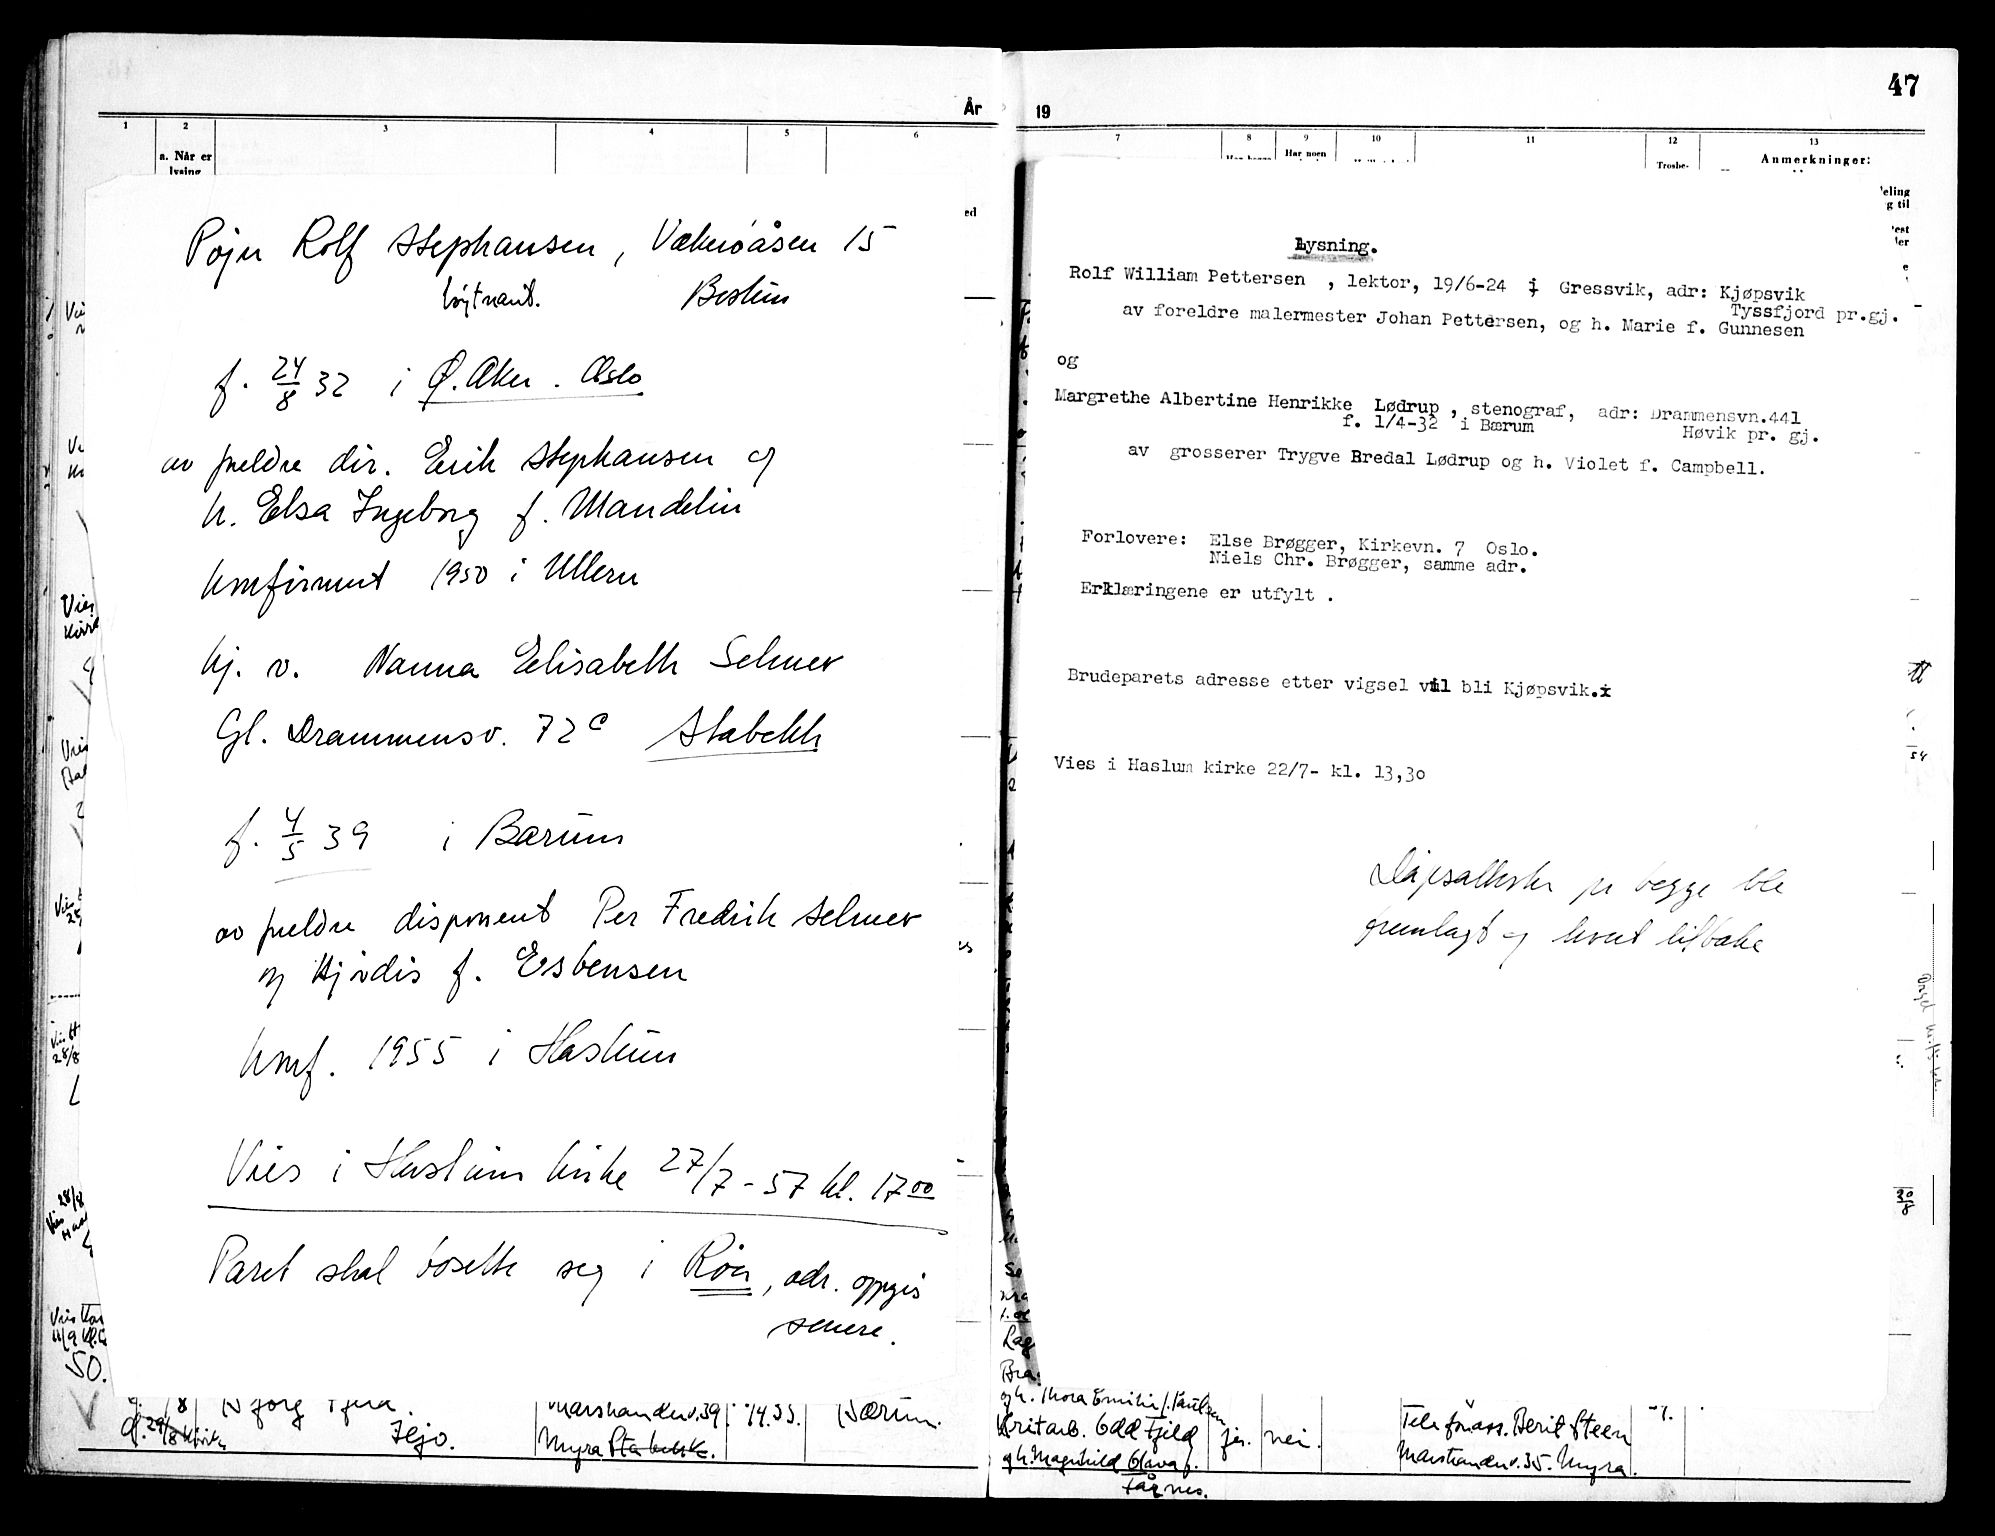 År
1 2 3 4 5 6
a. Når er
lysing
ed
Rolf Stephansen, Vækerøåsen 15
løytnant. Bestun
f. 24/8 32 i Ø. Aker. Oslo
av foreldre dir. Erik Stephansen og
h. Elsa Ingeborg f. Mandelin
konfirmert 1950 i Ullern
kj. v. Nanna Elisabeth Selmer
Gl. Drammensv. 72 c Stabekk
f. 4/5 39 i Bærum
av foreldre disponent Per Fredrik Selmer
og Hjørdis f. Esbensen
konf. 1955 i Haslum
Vies i Haslum kirke 27/7-57 kl. 17 00
Paret skal bosette seg i, adr. oppgis
senere.
50.
Marstrandv. 39 14.35. Bærum.
29/8 Tejo. Myra Stabekk.
47
19
7 8 9 10 11 12 13
Har noen
Trosbe-
Anmerkninger:
eling
g til
Lysning.
Rolf William Pettersen , lektor, 19/6-24 i Gressvik, adr: Kjøpsvik
Tyssfjord pr.gj.
av foreldre malermester Johan Pettersen, og h. Marie f. Gunnesen
og
Margrethe Albertine Henrikke Lødrup , stenograf, adr: Drammensvn.441
f. 1/4-32 i Bærum Høvik pr. gj.
av grosserer Trygve Bredal Lødrup og h. Violet f. Campbell.
Forlovere: Else Brøgger, Kirkevn. 7 Oslo.
Niels Chr. Brøgger, samme adr.
Erklæringene er utfylt .
Brudeparets adresse etter vigsel vil bli Kjøpsvik.
Vies i Haslum kirke 22/7- kl. 13,30
Dåpsattester for begge ble
fremlagt og levert tilbake
30/8
og h. Thora Emilie f. Paulsen
Odd Fjeld ja. nei. Telefonass. Berit Steen
og h. Magnhild Marstrandv. 35. Myra.
Tårnes.